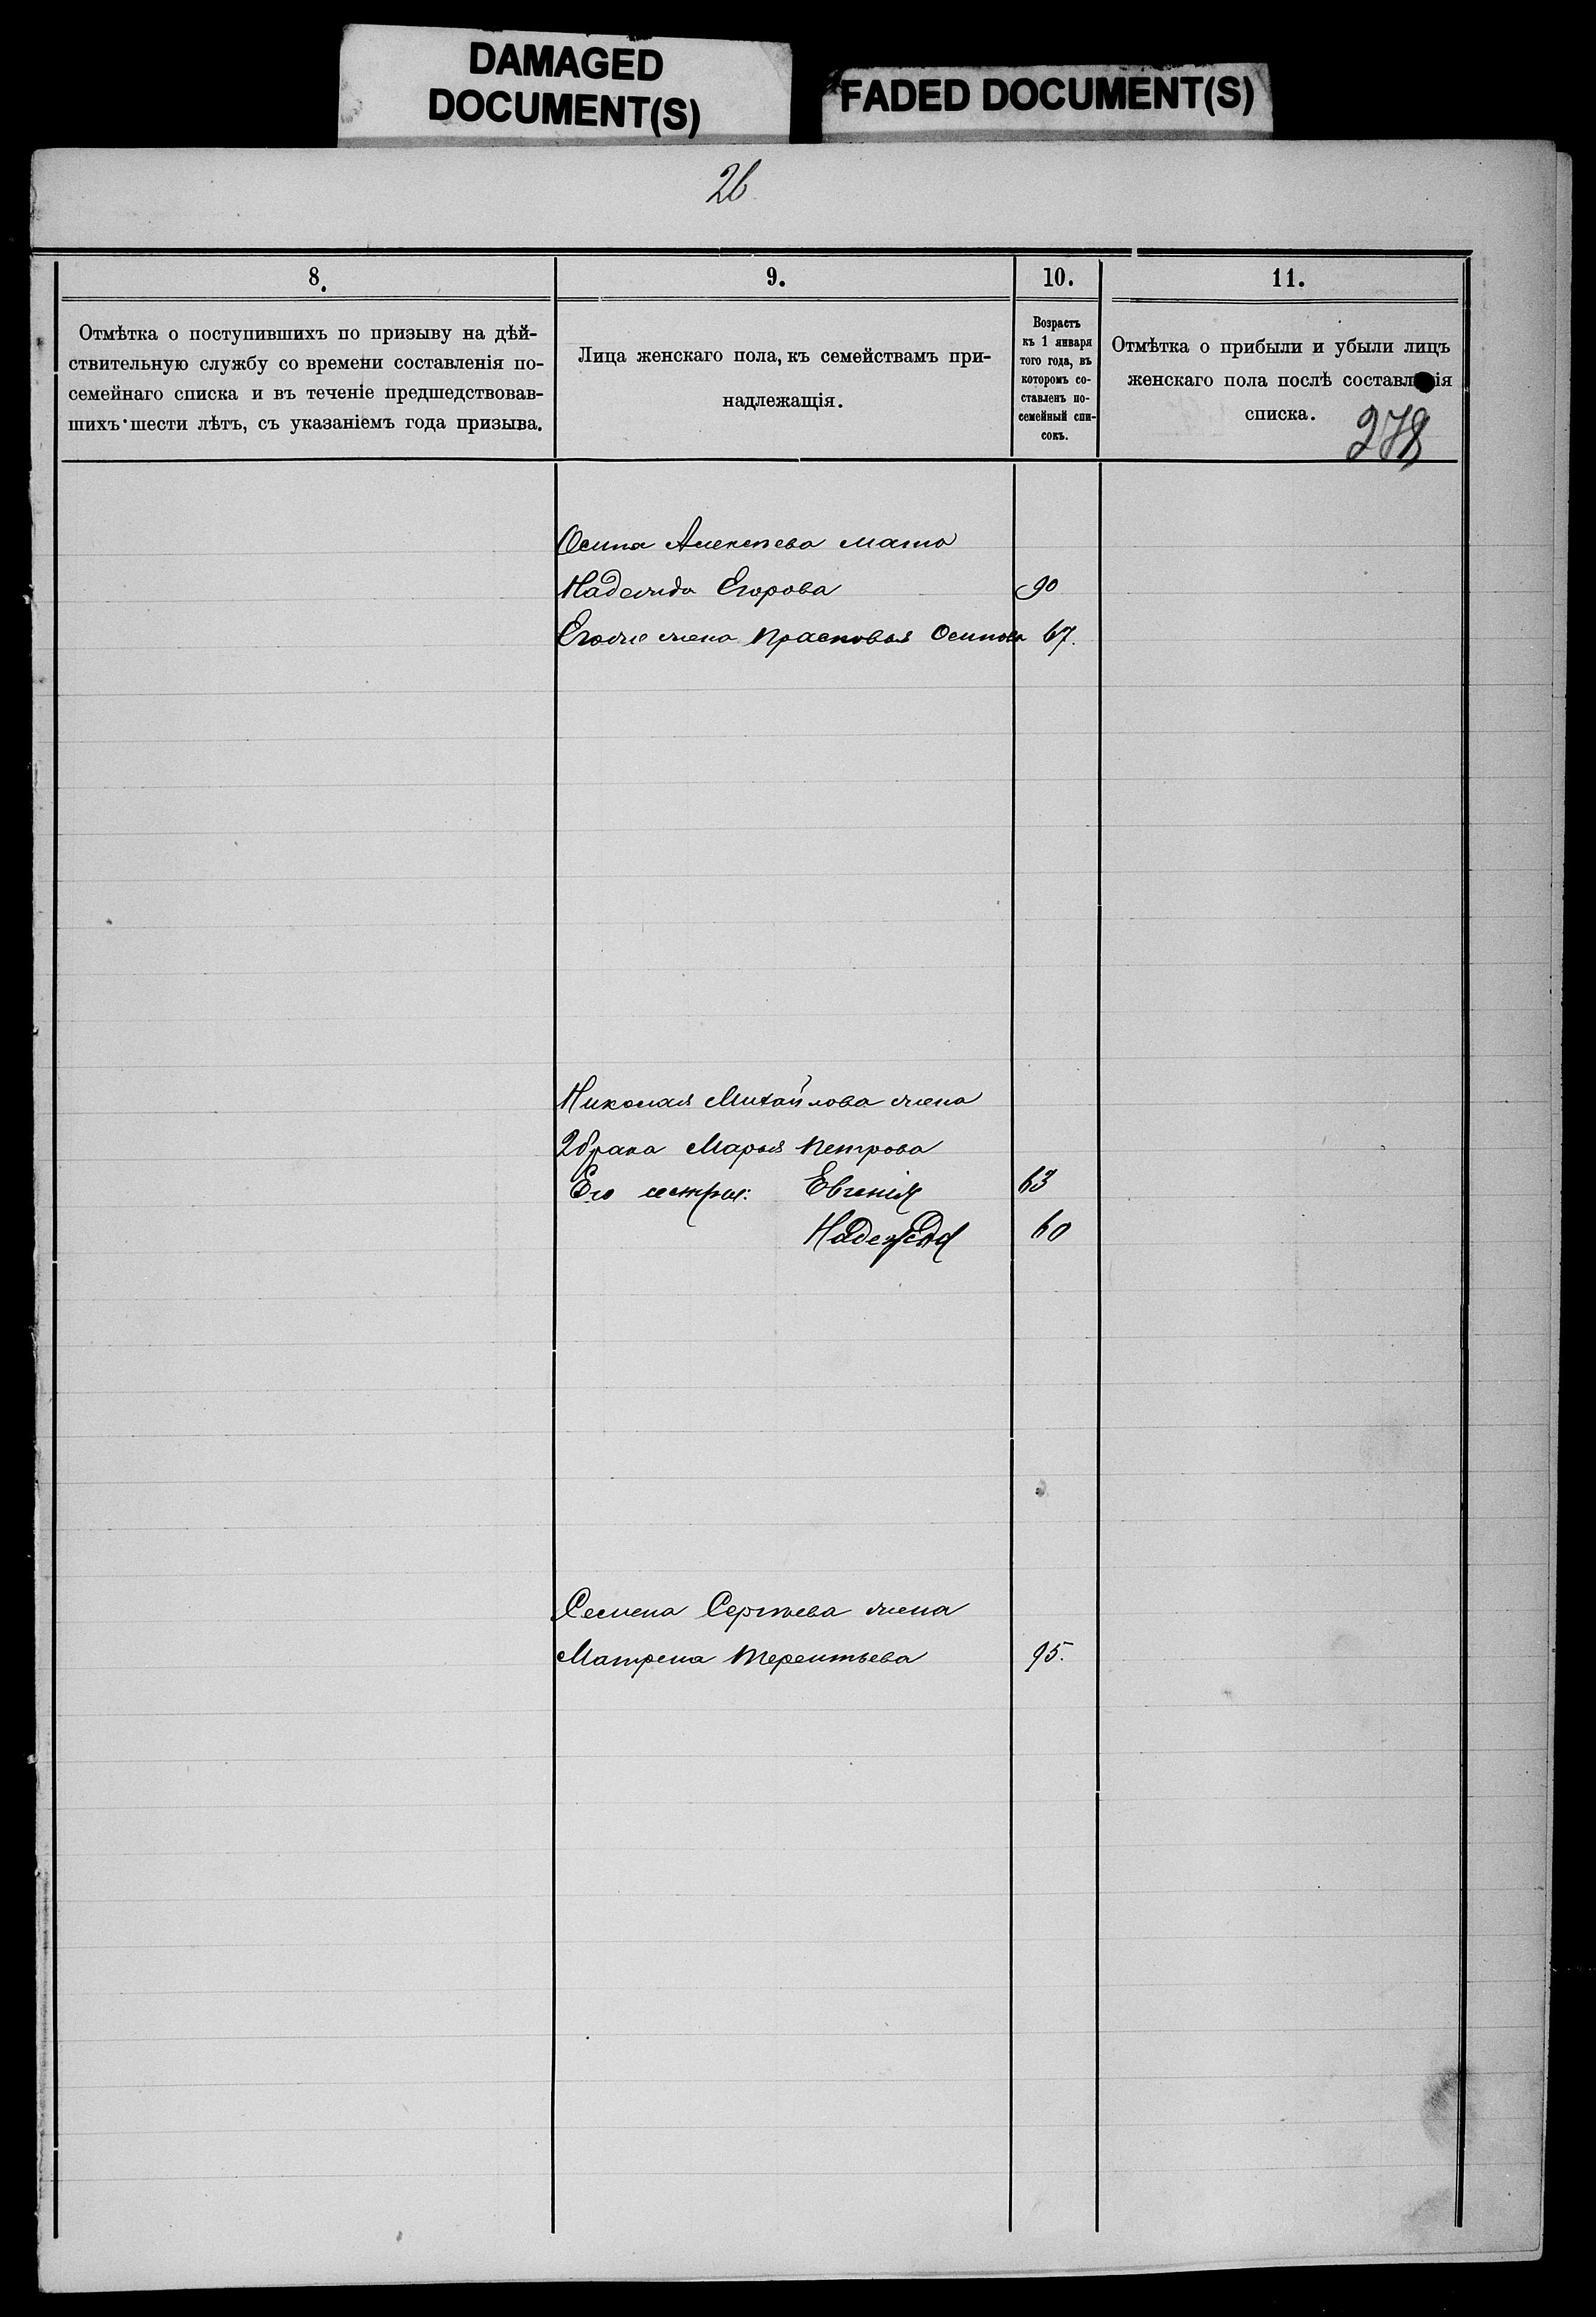 DAMAGED
DOCUMENT(S)
FADED DOCUMENT(S)
26
8.
9.
10.
11.
Отмѣтка о поступившихъ по призыву на дѣй-
ствительную службу со времени составленія по-
семейнаго списка и въ теченіе предшедствовав-
шихъ шести лѣтъ, съ указаніемъ года призыва.
Лица женскаго пола, къ семействамъ при-
надлежащія.
Возрастъ
къ 1 января
того года, въ
которомъ со-
ставленъ по-
семейный спи-
сокъ.
Отмѣтка о прибыли и убыли лицъ
женскаго пола послѣ составленія
списка.
278
Осипа Алексѣева мать
Надежда Егорова 90
Егоже жена Прасковья Осипова 67.
Николая Михайлова жена
2 брака Марья Петрова
Его сестры: Евгенія 63
Надежда 60
Семена Сергѣева жена
Матрена Терентьева 95.